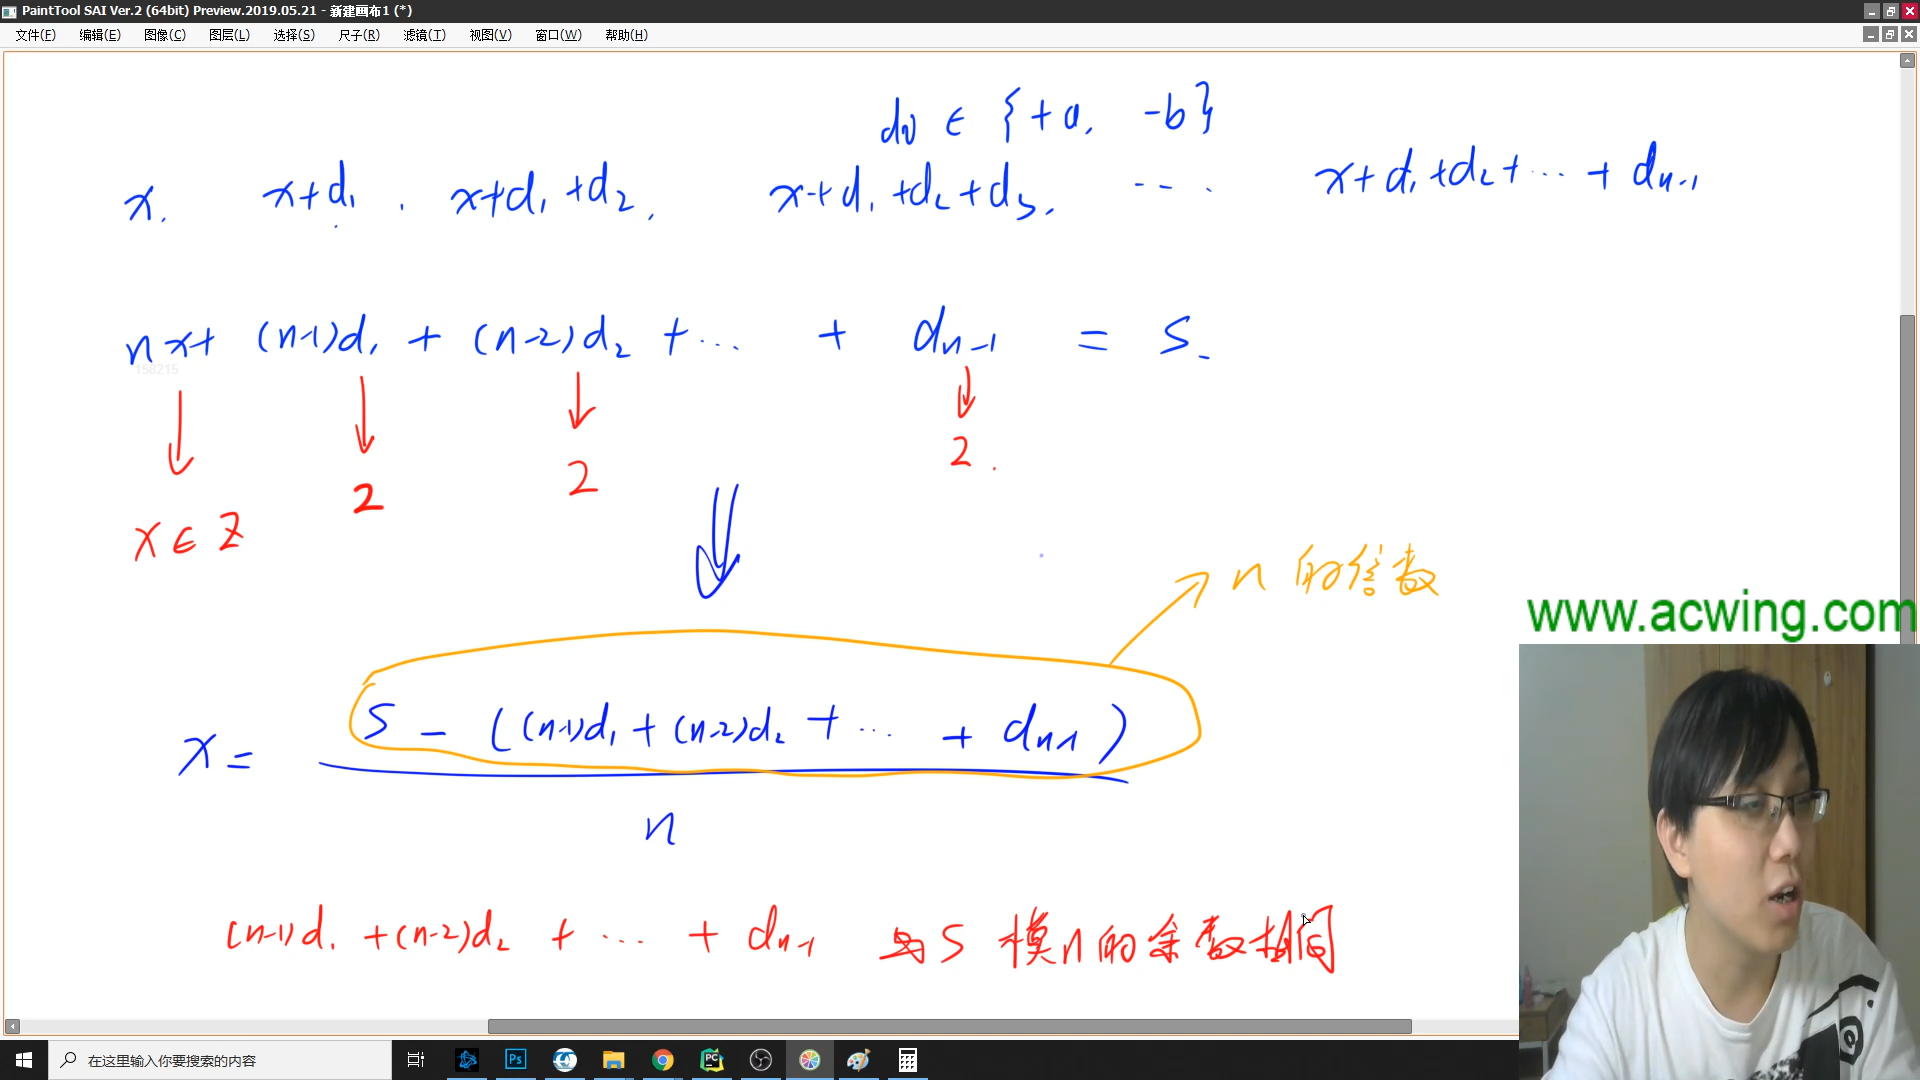 PaintTool SAI Ver.2 (64bit) Preview.2019.05.21 - 新建画布1 (*)
文件(F) 编辑(E) 图像(C) 图层(L) 选择(S) 尺子(R) 滤镜(T) 视图(V) 窗口(W) 帮助(H)
di ∈ {+a, -b}
x, x+d₁, x+d₁+d₂, x+d₁+d₂+d₃, ... x+d₁+d₂+...+dₙ₋₁
nx+ (n-1)d₁ + (n-2)d₂ + ... + dₙ₋₁ = S
158215
2 2 2
x ∈ Z
n 的倍数
www.acwing.com
x = S - ((n-1)d₁ + (n-2)d₂ + ... + dₙ₋₁)
n
(n-1)d₁ + (n-2)d₂ + ... + dₙ₋₁ 与 S 模n的余数相同
在这里输入你要搜索的内容